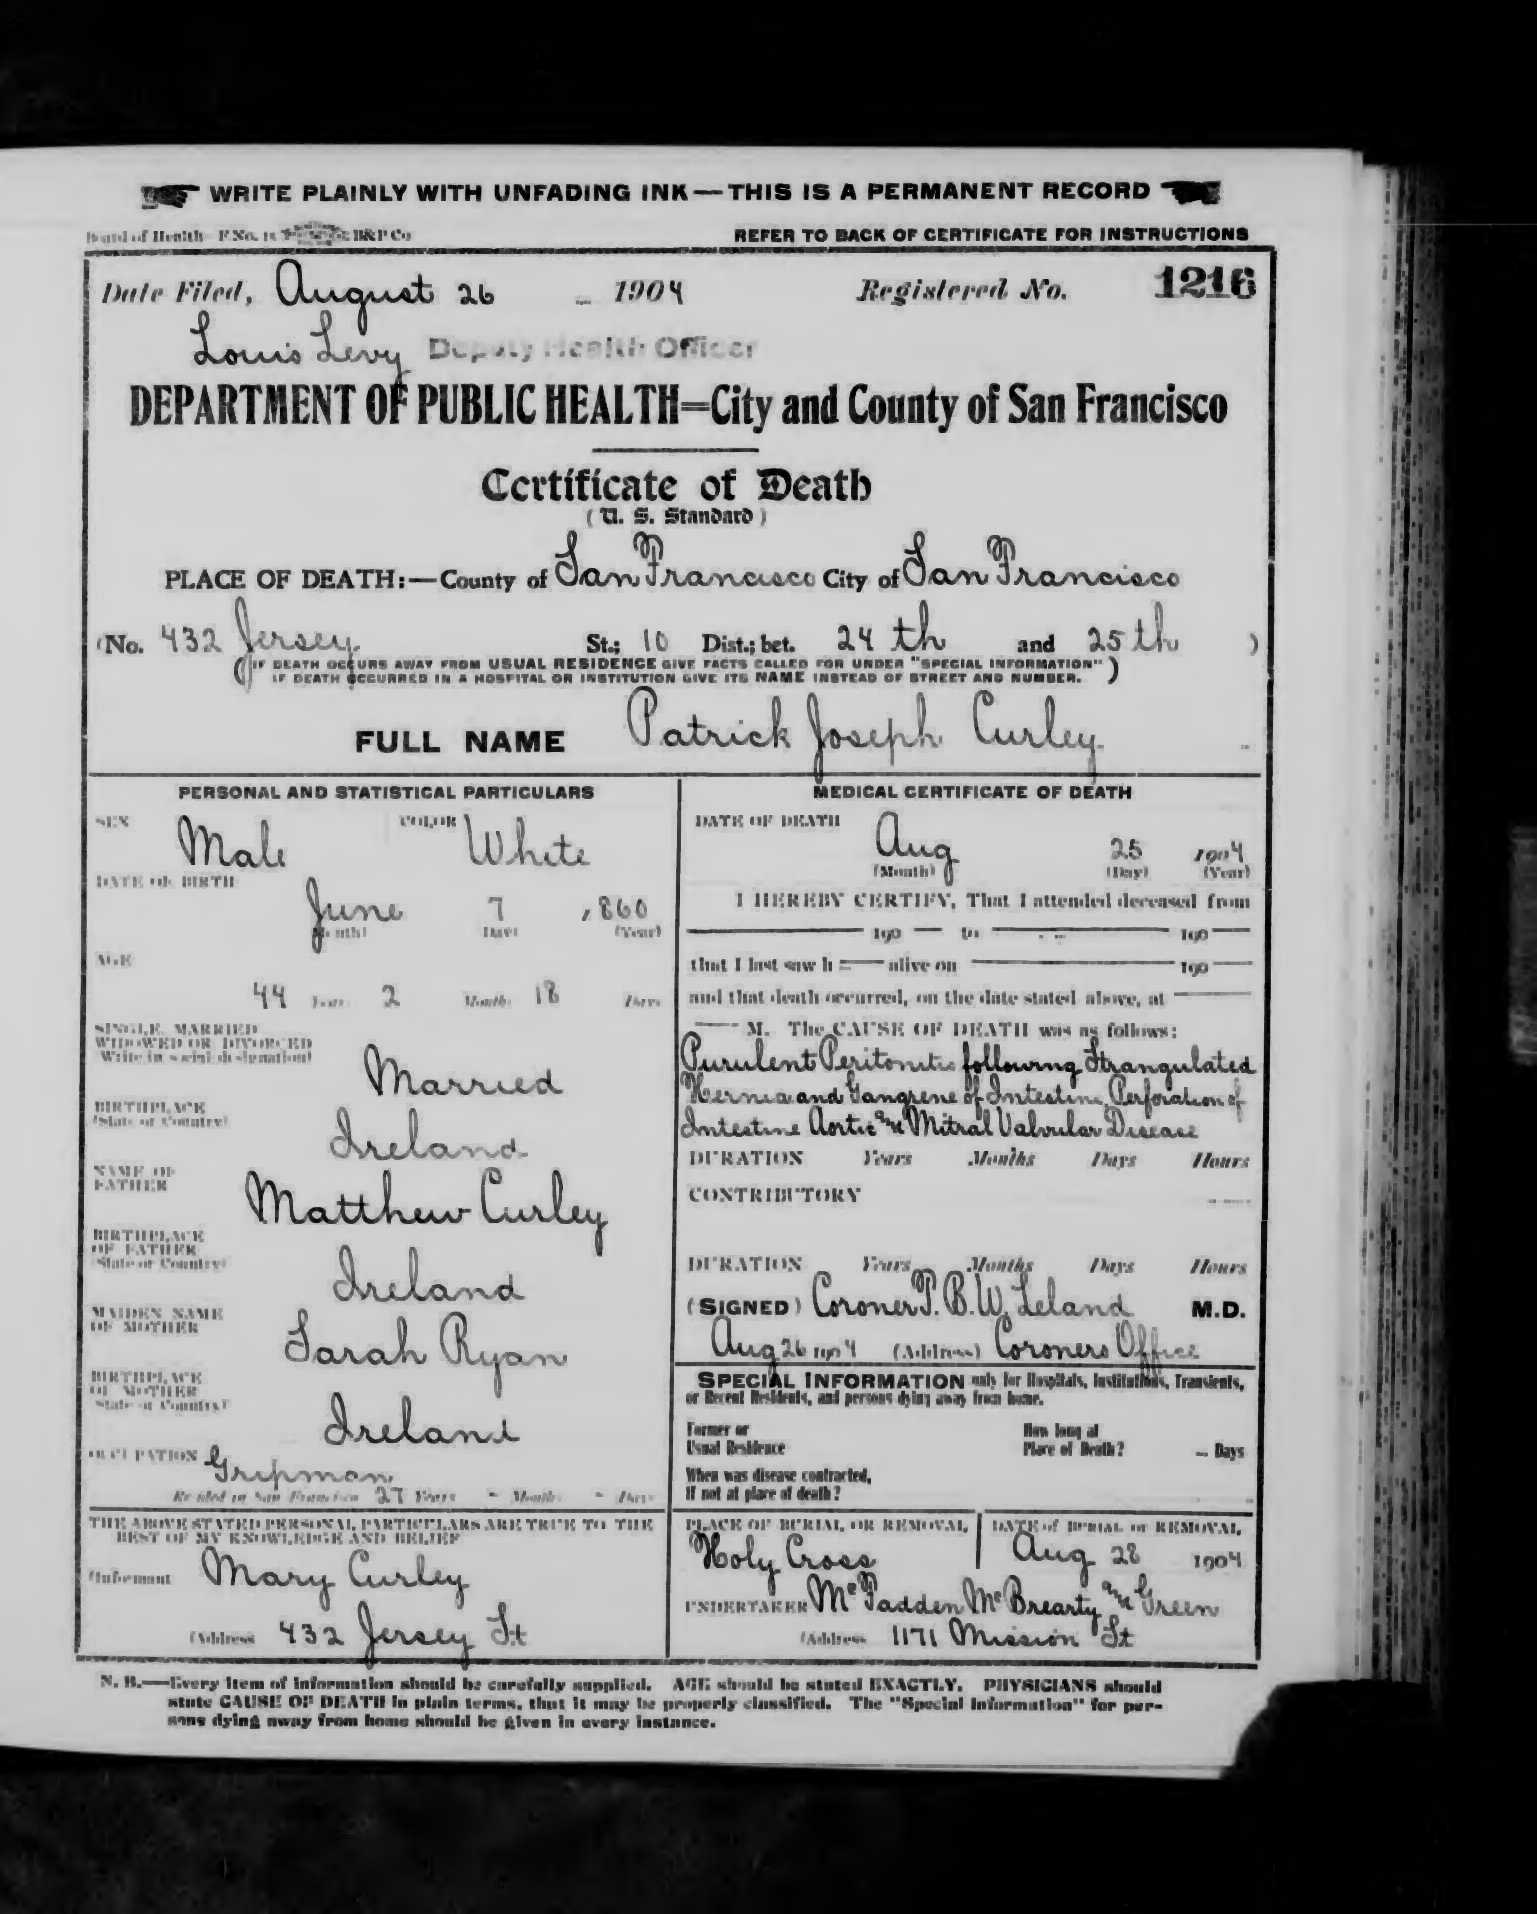 WRITE PLAINLY WITH UNFADING INK — THIS IS A PERMANENT RECORD
Board of Health F. No. B&P Co
REFER TO BACK OF CERTIFICATE FOR INSTRUCTIONS
Date Filed, August 26 1904 Registered No. 1216
Louis Levy Deputy Health Officer
DEPARTMENT OF PUBLIC HEALTH=City and County of San Francisco
Certificate of Death
(U. S. Standard)
PLACE OF DEATH:—County of San Francisco City of San Francisco
(No. 432 Jersey St.; 10 Dist.; bet. 24 th and 25 th )
(IF DEATH OCCURS AWAY FROM USUAL RESIDENCE GIVE FACTS CALLED FOR UNDER "SPECIAL INFORMATION"
IF DEATH OCCURRED IN A HOSPITAL OR INSTITUTION GIVE ITS NAME INSTEAD OF STREET AND NUMBER.)
FULL NAME Patrick Joseph Curley
PERSONAL AND STATISTICAL PARTICULARS
SEX Male COLOR White
DATE OF BIRTH
June 7 , 860
(Month) (Day) (Year)
AGE
44 Years 2 Months 18 Days
SINGLE, MARRIED
WIDOWED OR DIVORCED
(Write in social designation)
Married
BIRTHPLACE
(State or Country)
Ireland
NAME OF
FATHER
Matthew Curley
BIRTHPLACE
OF FATHER
(State or Country)
Ireland
MAIDEN NAME
OF MOTHER
Sarah Ryan
BIRTHPLACE
OF MOTHER
(State or Country)
Ireland
OCCUPATION Gripman
Resided in San Francisco 27 Years - Months - Days
THE ABOVE STATED PERSONAL PARTICULARS ARE TRUE TO THE
BEST OF MY KNOWLEDGE AND BELIEF
(Informant Mary Curley
(Address 432 Jersey St
MEDICAL CERTIFICATE OF DEATH
DATE OF DEATH
Aug 25 1904
(Month) (Day) (Year)
I HEREBY CERTIFY, That I attended deceased from
190 to 190
that I last saw h alive on 190
and that death occurred, on the date stated above, at
M. The CAUSE OF DEATH was as follows:
Purulent Peritonitis following Strangulated
Hernia and Gangrene of Intestine Perforation of
Intestine Aortic and Mitral Valvular Disease
DURATION Years Months Days Hours
CONTRIBUTORY
DURATION Years Months Days Hours
(SIGNED) Coroner T. B. W. Leland M.D.
Aug 26 1904 (Address) Coroners Office
SPECIAL INFORMATION only for Hospitals, Institutions, Transients,
or Recent Residents, and persons dying away from home.
Former or
Usual Residence
How long at
Place of Death? Days
When was disease contracted,
If not at place of death?
PLACE OF BURIAL OR REMOVAL
Holy Cross
DATE of BURIAL or REMOVAL
Aug 28 1904
UNDERTAKER McFadden McBrearty and Green
(Address 1171 Mission St
N. B.—Every item of information should be carefully supplied. AGE should be stated EXACTLY. PHYSICIANS should
state CAUSE OF DEATH in plain terms, that it may be properly classified. The "Special Information" for per-
sons dying away from home should be given in every instance.